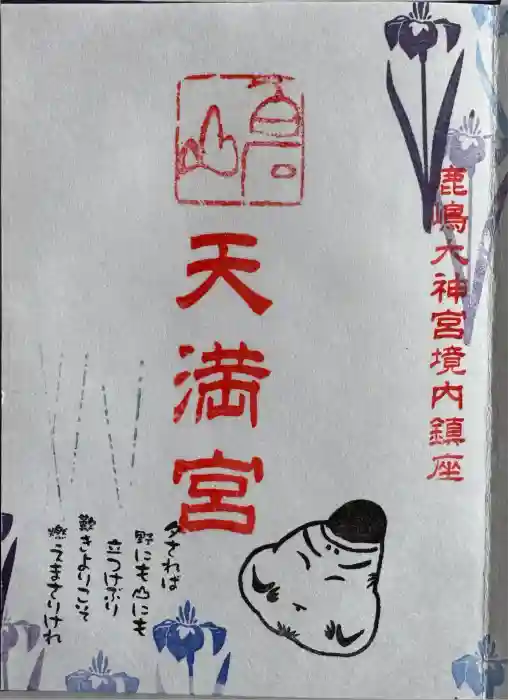 鹿嶋大神宮境内鎮座
天満宮
夕されば
野にも山にも
立つけぶり
歎きよりこそ
燃えまさりけれ